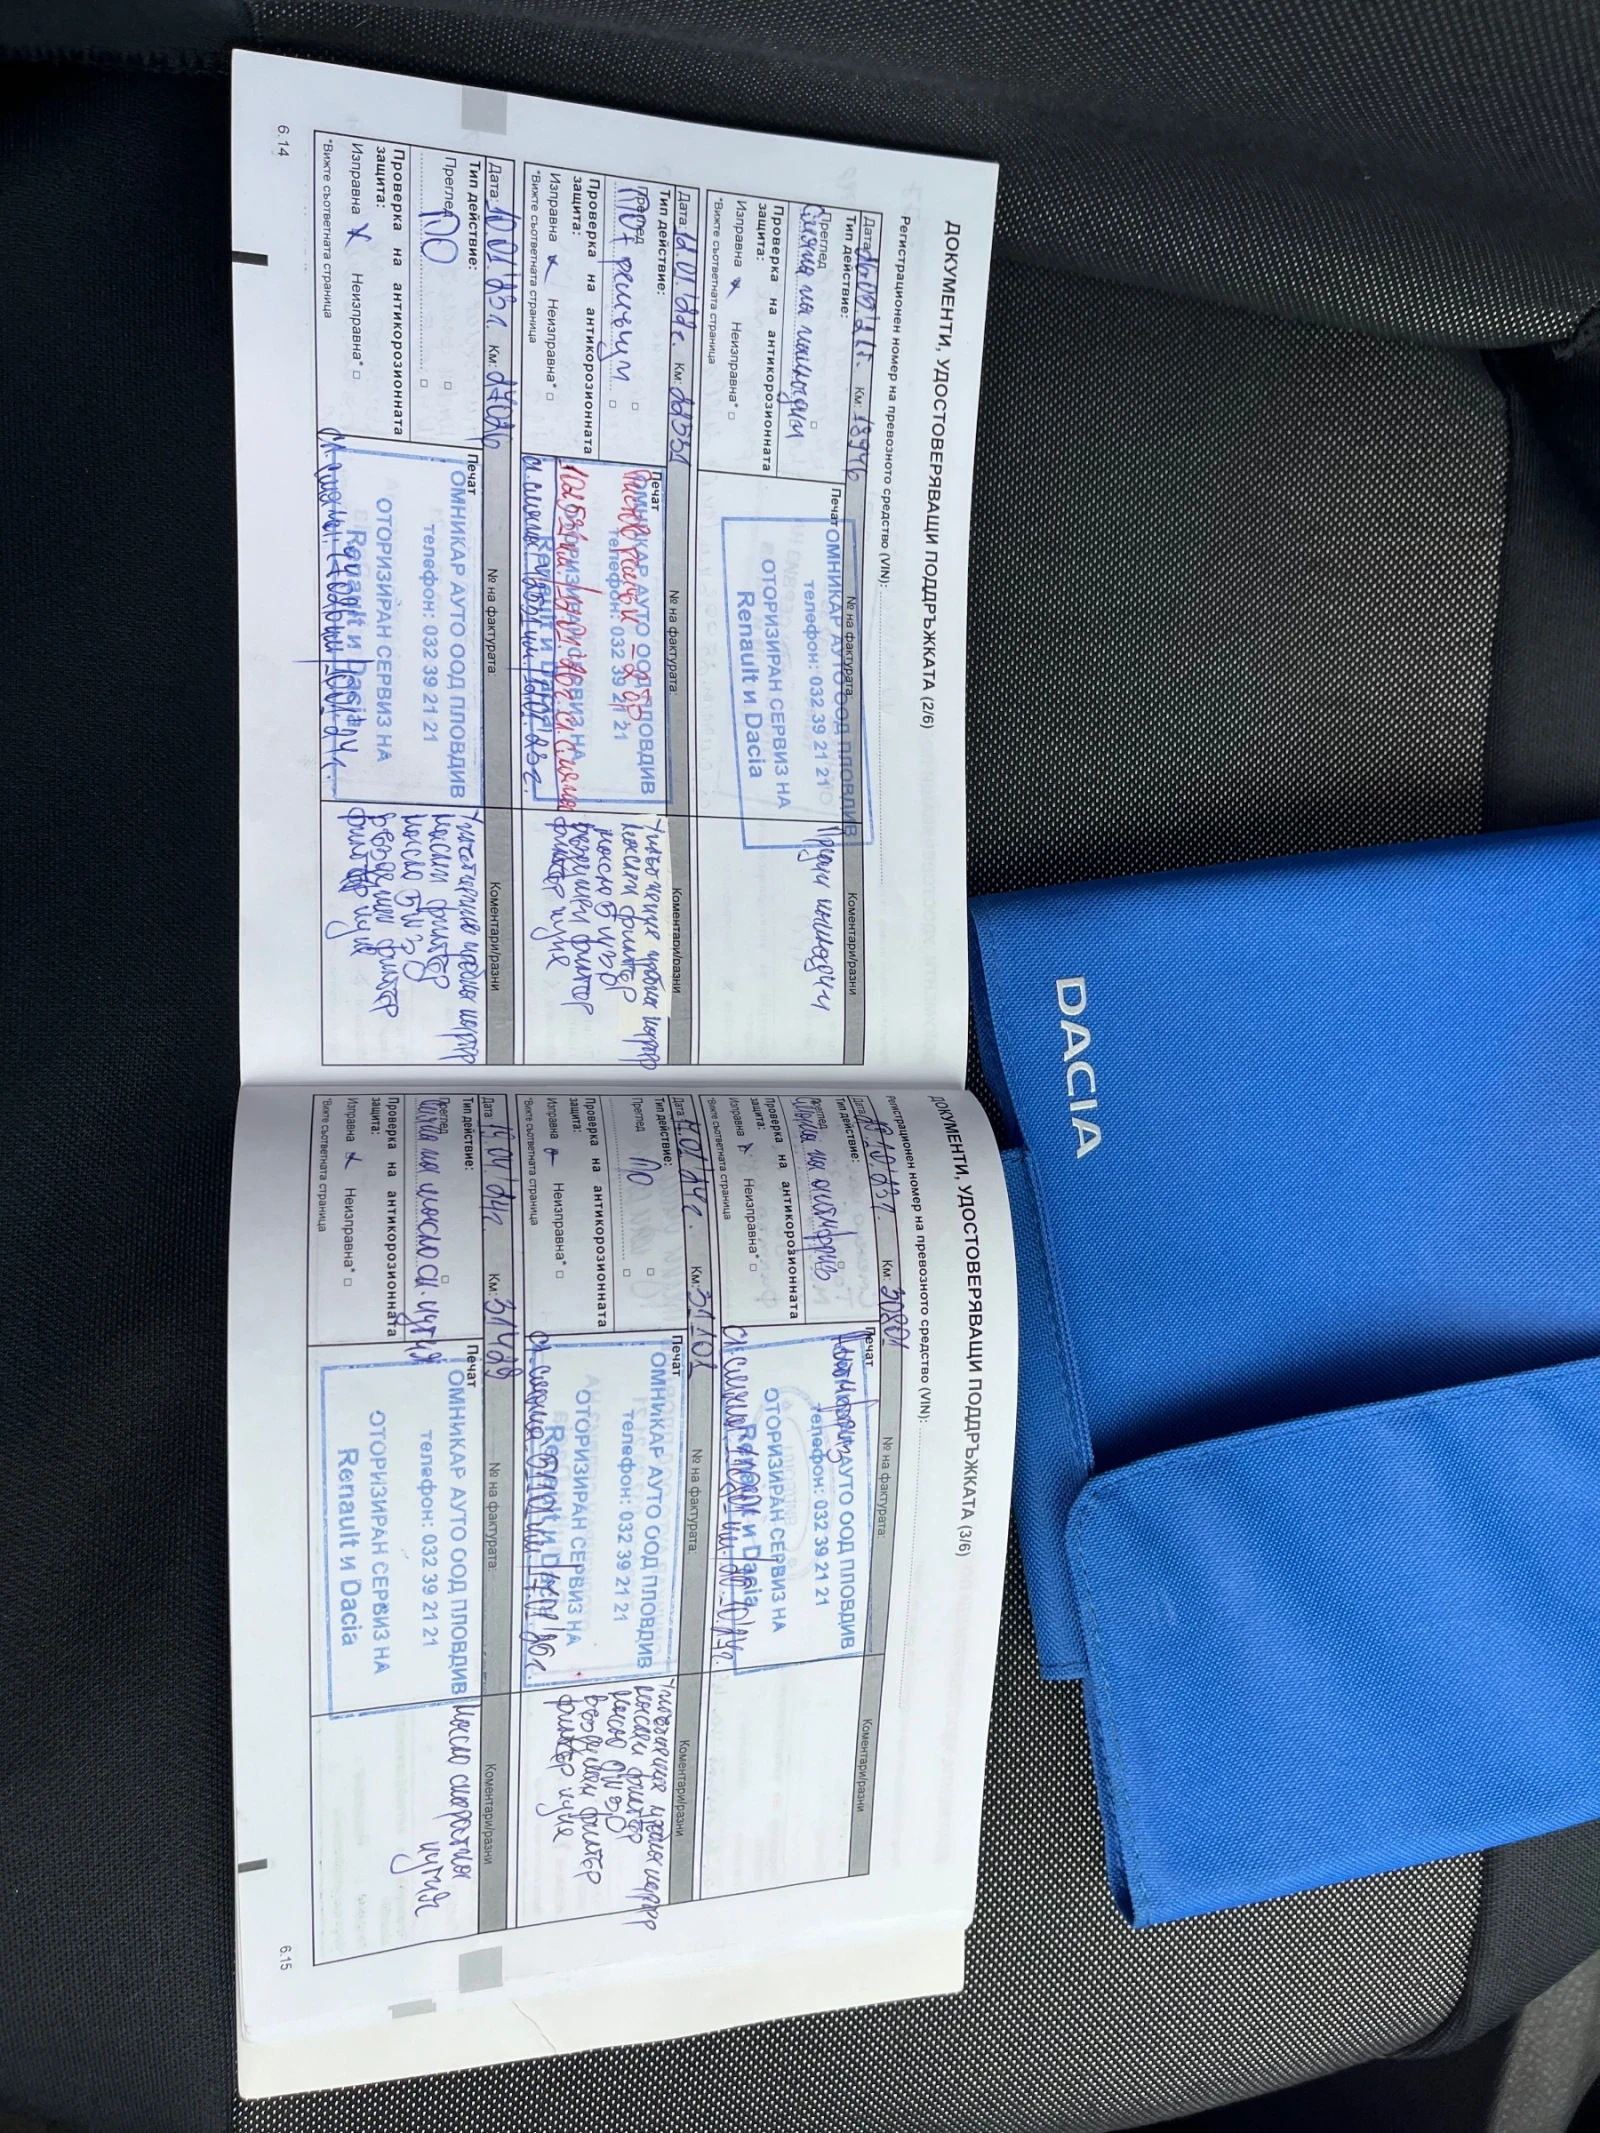 ДОКУМЕНТИ, УДОСТОВЕРЯВАЩИ ПОДДРЪЖКАТА (2/6)
Регистрационен номер на превозното средство (VIN):
Дата: Км: 18446 № на фактурата: Коментари/разни
Тип действие: Печат
Преглед
Смяна на
Проверка на антикорозионната защита:
Изправна x Неизправна*
*Вижте съответната страница
ОМНИКАР АУТО ООД ПЛОВДИВ
телефон: 032 39 21 21
ОТОРИЗИРАН СЕРВИЗ НА
Renault и Dacia
Предни
Дата: 12.01.22г. Км: 22551 № на фактурата: Коментари/разни
Тип действие: Печат
Преглед
ПО+ ремъци
Проверка на антикорозионната
защита:
Изправна x Неизправна*
*Вижте съответната страница
ОМНИКАР АУТО ООД ПЛОВДИВ
телефон: 032 39 21 21
ОТОРИЗИРАН СЕРВИЗ НА
Renault и Dacia
Уплътнение пробка картер
маслен филтър
масло
въздушен филтър
филтър купе
Дата: 10.01.23г. Км: 27026 № на фактурата: Коментари/разни
Тип действие: Печат
Преглед ПО
Проверка на антикорозионната
защита:
Изправна x Неизправна*
*Вижте съответната страница
ОМНИКАР АУТО ООД ПЛОВДИВ
телефон: 032 39 21 21
ОТОРИЗИРАН СЕРВИЗ НА
Renault и Dacia
Уплътнение пробка картер
маслен филтър
масло
въздушен филтър
филтър купе
6.14
ДОКУМЕНТИ, УДОСТОВЕРЯВАЩИ ПОДДРЪЖКАТА (3/6)
Регистрационен номер на превозното средство (VIN):
Дата: Км: 30801 № на фактурата: Коментари/разни
Тип действие: Печат
Преглед
Смяна на антифриз
Проверка на антикорозионната
защита:
Изправна x Неизправна*
*Вижте съответната страница
Антифриз
АУТО ООД ПЛОВДИВ
телефон: 032 39 21 21
ОТОРИЗИРАН СЕРВИЗ НА
Renault и Dacia
Дата: 17.01.24г. Км: 31101 № на фактурата: Коментари/разни
Тип действие: Печат
Преглед ПО
Проверка на антикорозионната
защита:
Изправна x Неизправна*
*Вижте съответната страница
ОМНИКАР АУТО ООД ПЛОВДИВ
телефон: 032 39 21 21
ОТОРИЗИРАН СЕРВИЗ НА
Renault и Dacia
Уплътнение пробка картер
маслен филтър
масло
въздушен филтър
филтър купе
Дата: 19.04.24г. Км: 31429 № на фактурата: Коментари/разни
Тип действие: Печат
Преглед
Смяна на масло ск. кутия
Проверка на антикорозионната
защита:
Изправна x Неизправна*
*Вижте съответната страница
ОМНИКАР АУТО ООД ПЛОВДИВ
телефон: 032 39 21 21
ОТОРИЗИРАН СЕРВИЗ НА
Renault и Dacia
Масло скоростна
кутия
6.15
DACIA